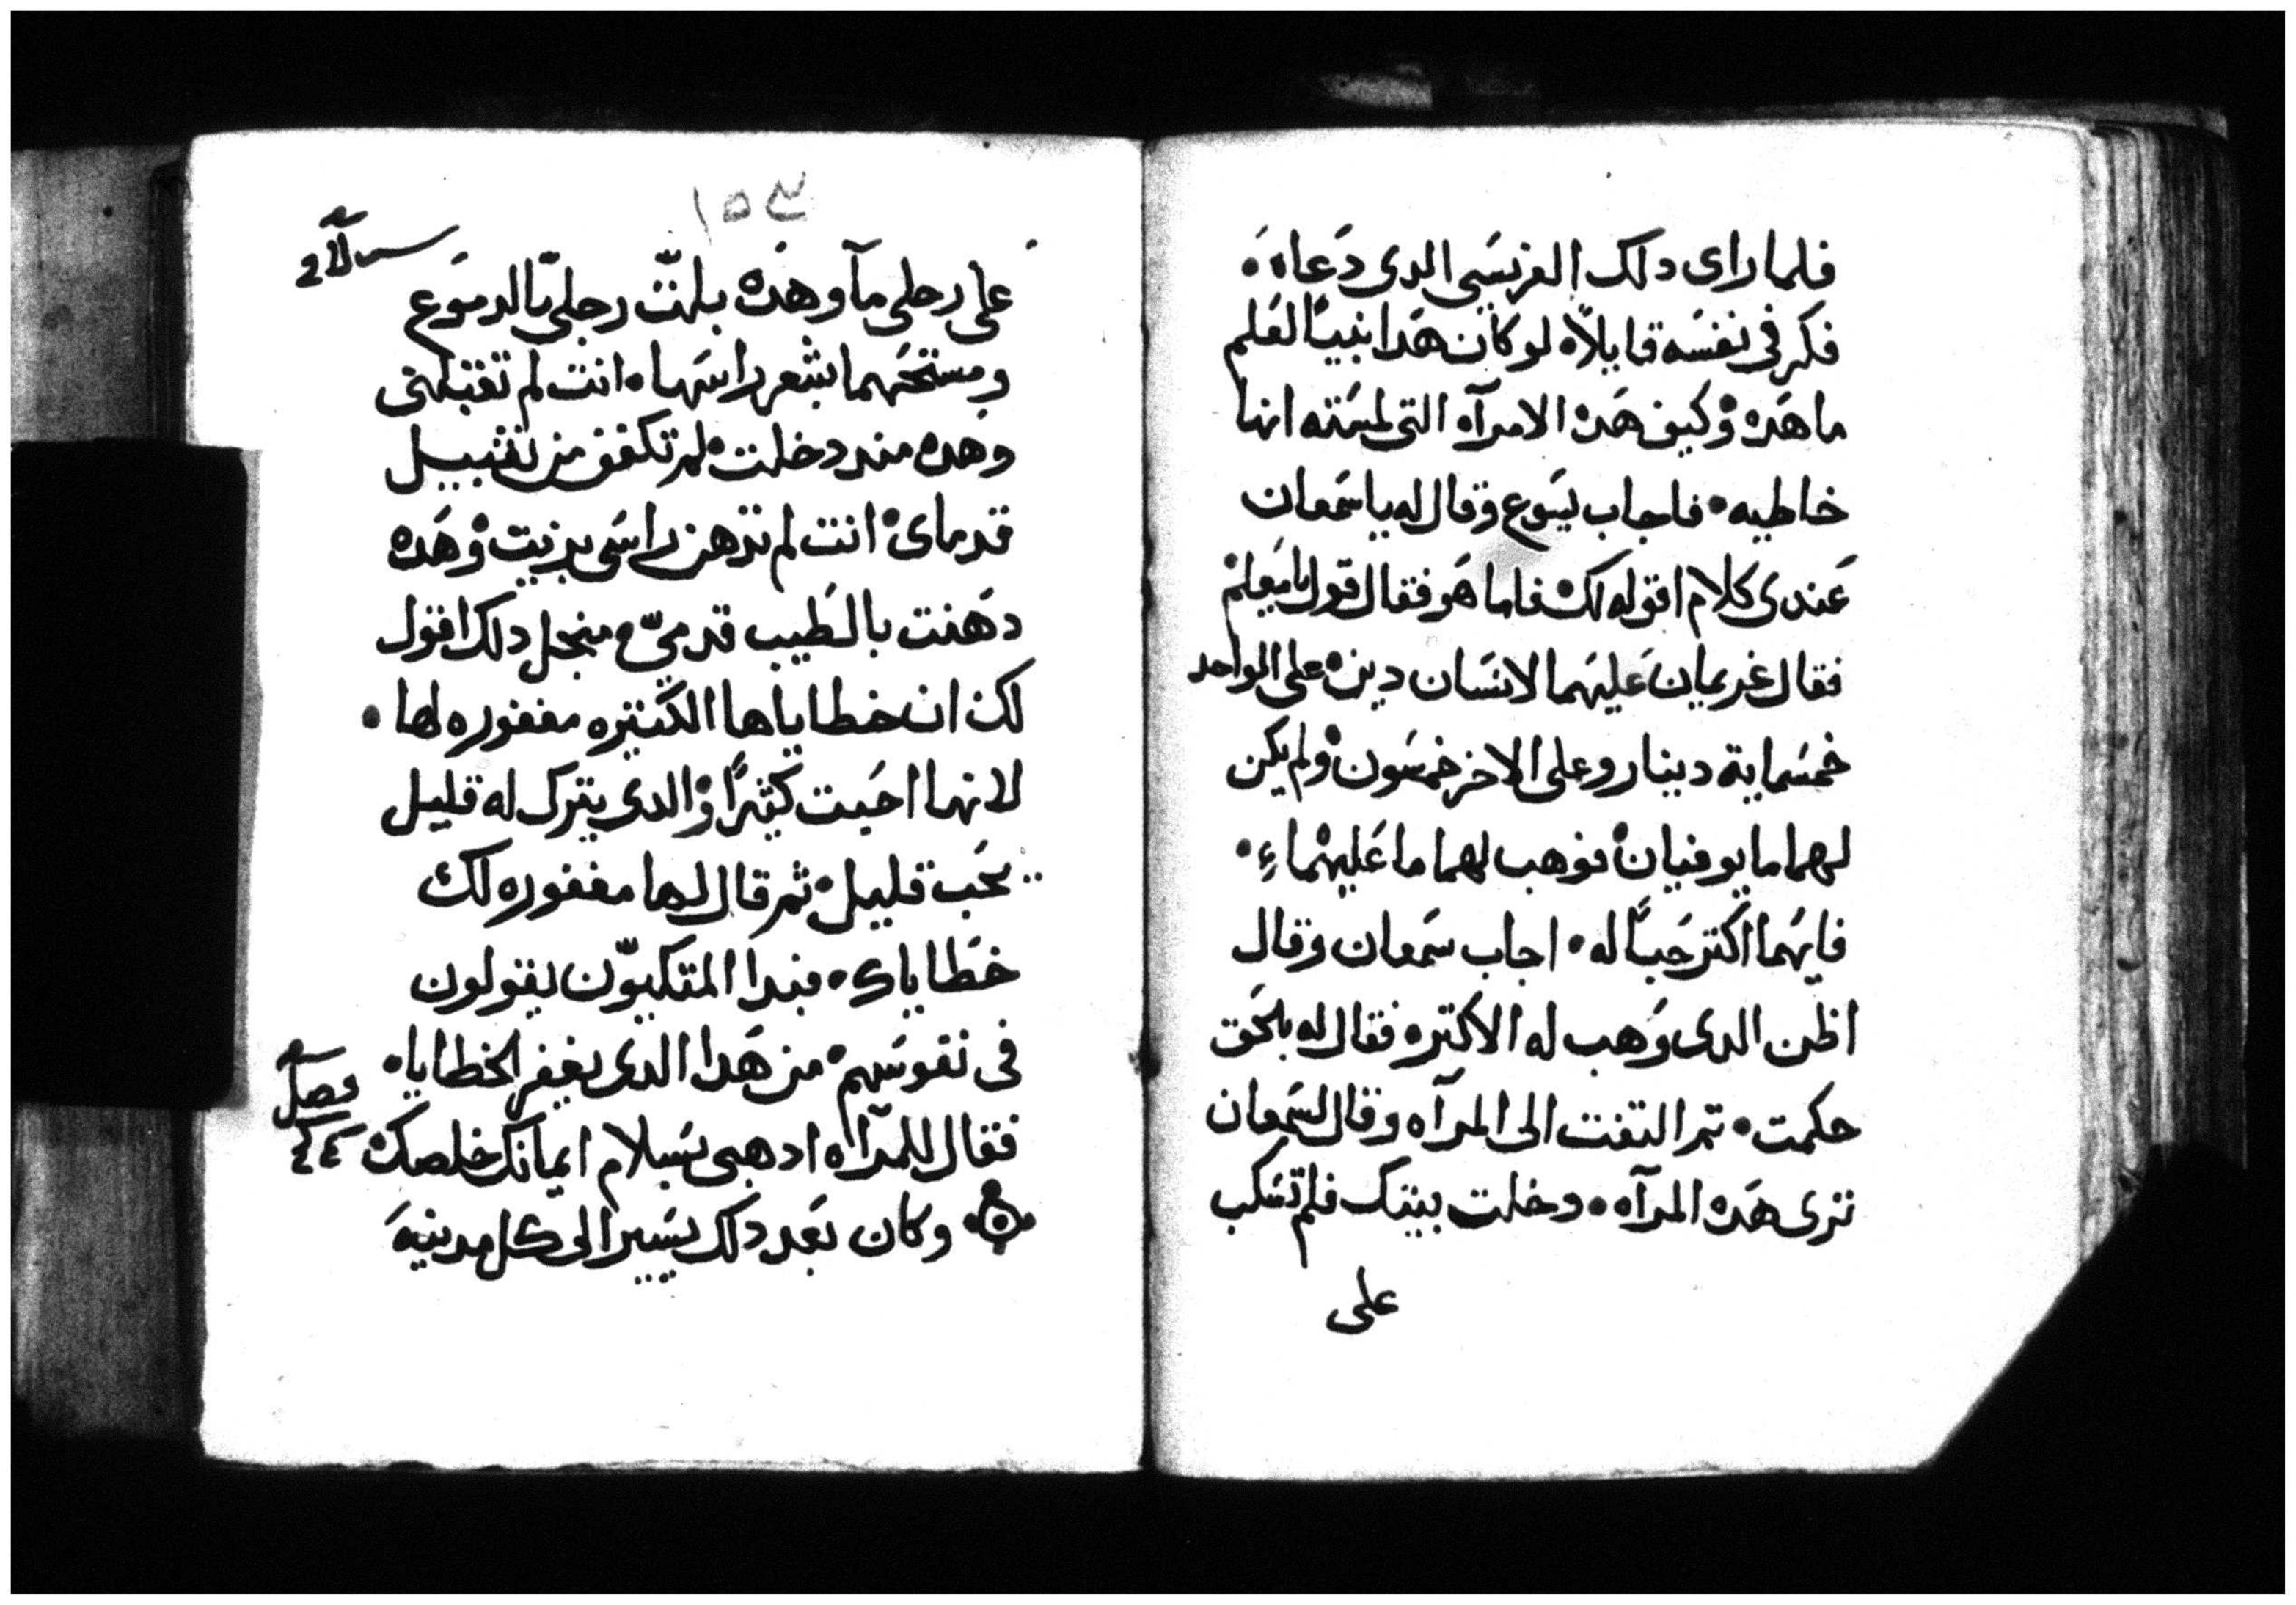 فلما راى دلك الفريسَي الدى دَعاه •
فكر في نفسَه قايلاً لو كان هَدا نبيًا لعَلم
ما هَده وْكيف هَده الامرآه التى لمسَته انها
خاطيه • فاجاب يسَوع وقال له يا سَمعان
عَندى كلام اقوله لك فاما هَو فقال قول يا مَعلم
فقال غريمان عَليهَما لانسَان دين على الواحد
خمسَماية دينار وعلى الاخر خمسَون ولم يكن
لهما ما يوفيان فوهب لهما ما عَليهما •
فايهَما اكتر حَبًا له • اجاب سَمعان وقال
اظن الدى وَهب له الاكتره فقال له بالحَق
حكمت • تم التفت الى المرآه وقال لسَمعان
ترى هَده المرآه • دخلت بيتك فلم تسَكب
على
١٥٣
على رجلى مآ وهَده بلت رجلىّ بالدموَع
ومسَتحَهما بشعر راسَها • انت لم تقبلنى
وهده مند دخلت لم تكفف من تقبيل
قدماى انت لم تدهن راسَى بزيت وْهَده
دهَنت بالطَيب قدمىّ منجل دلك اقول
لك ان خطاياها الكتيره مغفوره لها •
لانها احَبت كثيرًا وْالدى يترك له قليل
يحَب قليل ثم قال لها مغفوره لك
خطَاياك • فبدا المتكيّون يقولون
فى نفوسَهم من هَدا الدى يغفر الخطايا •
فقال للمرآه ادهبى بسَلام ايمانك خلصك
فصل
٤٤
وكان بعَد دلك يسَير الى كل مدينهَ